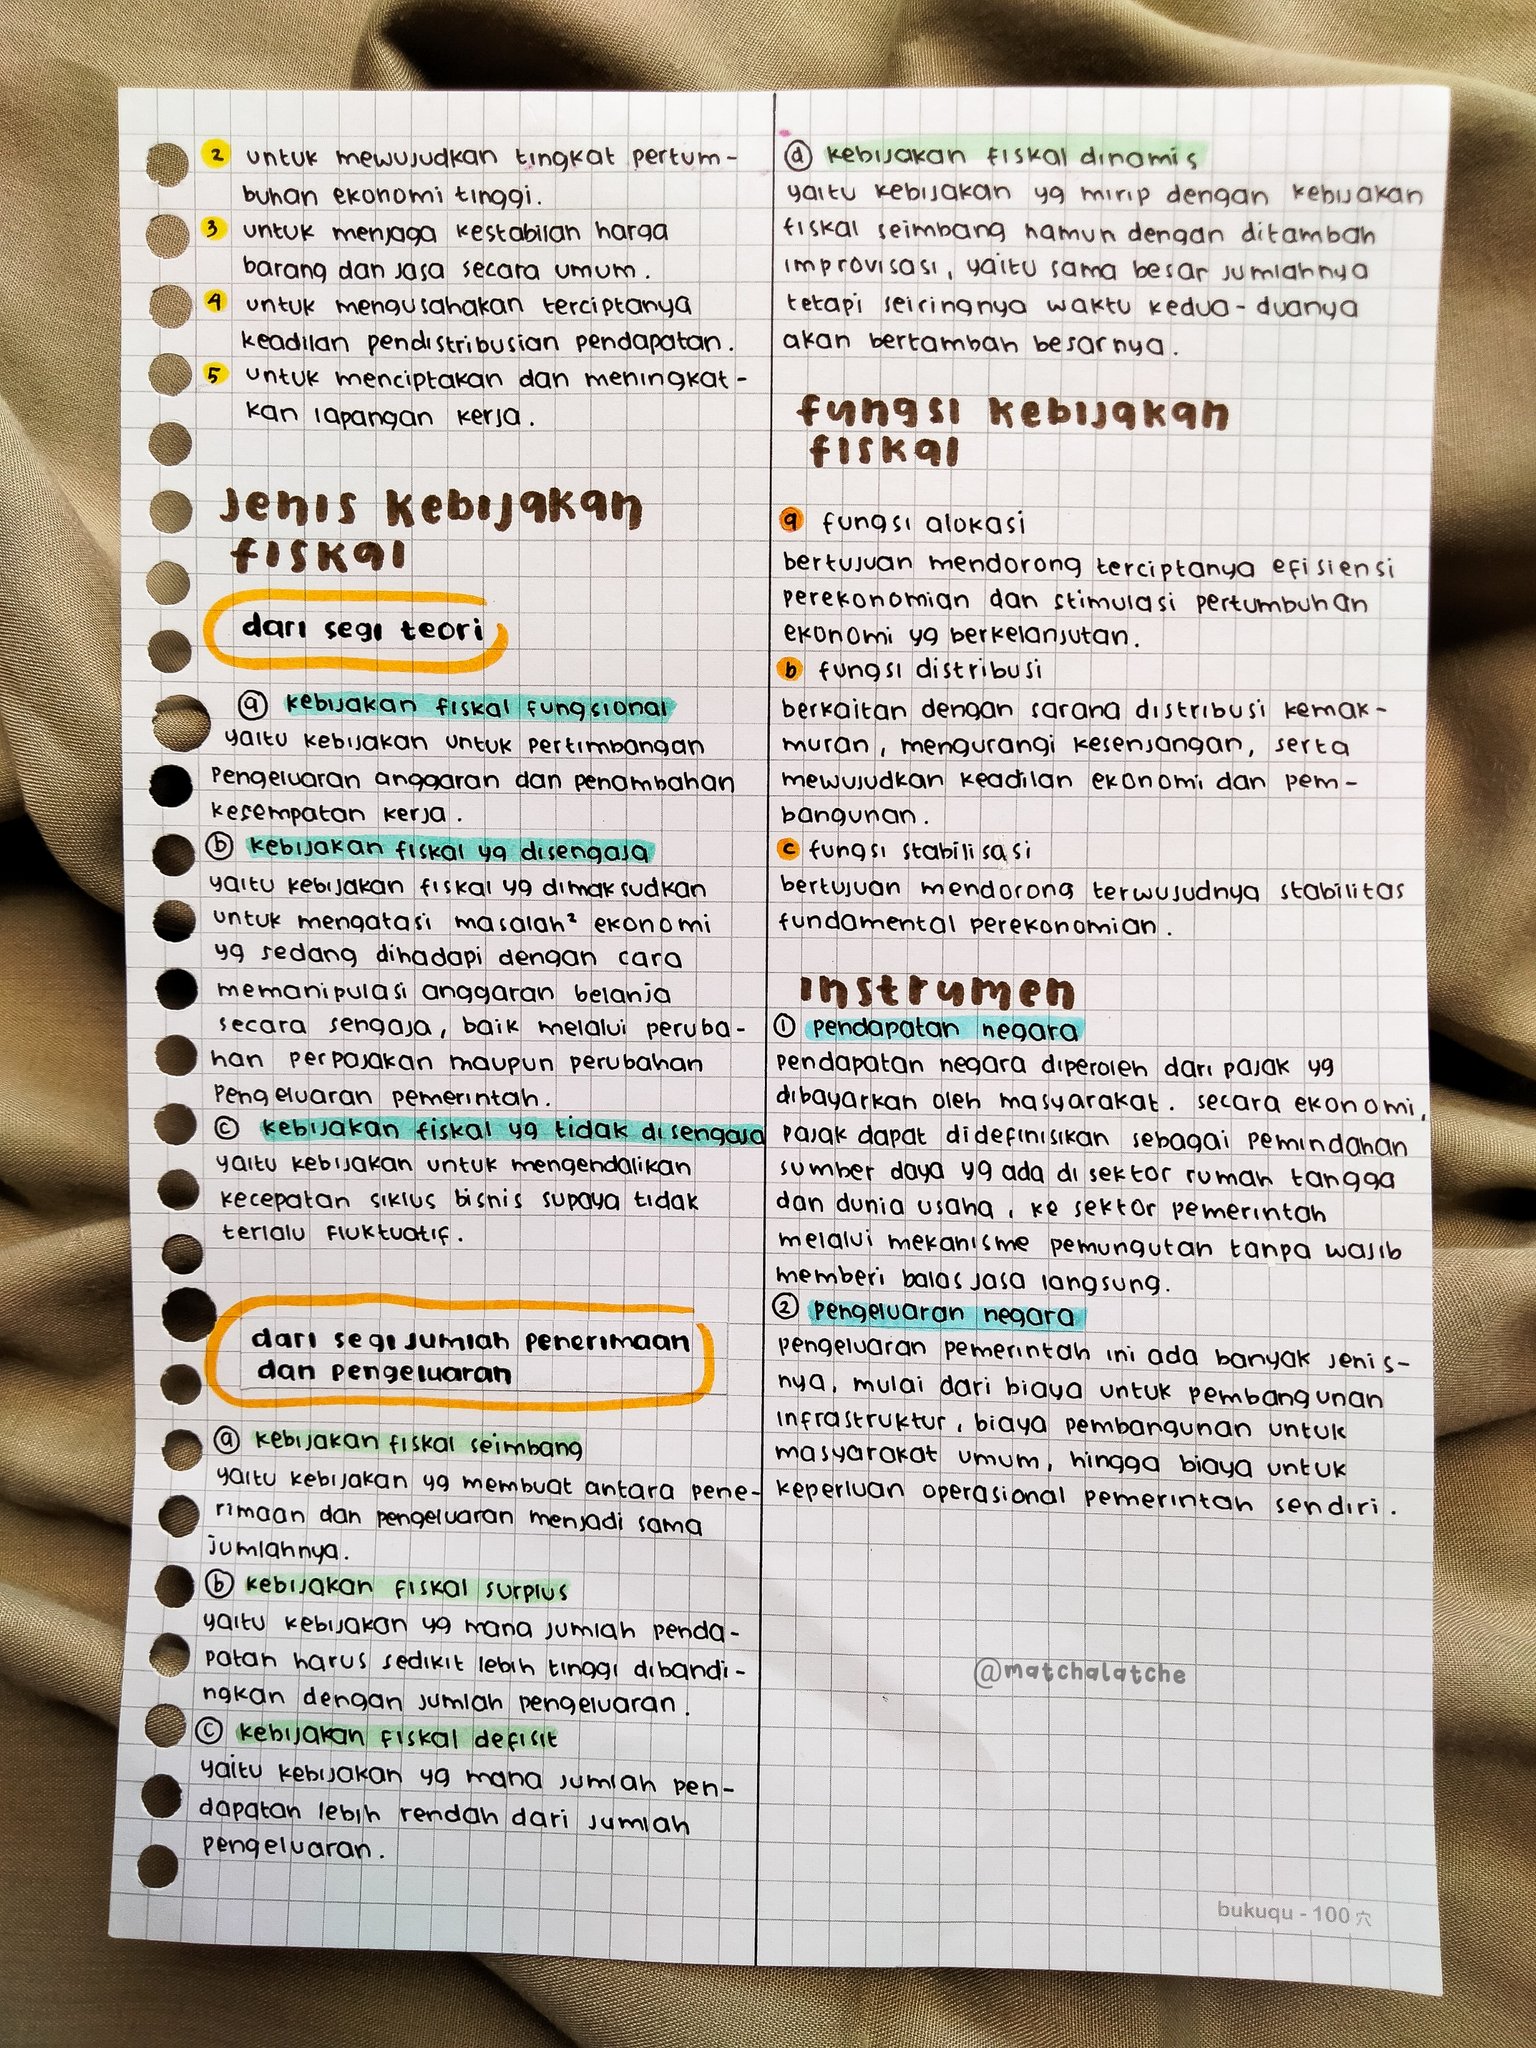 2 untuk mewujudkan tingkat pertum-
buhan ekonomi tinggi.
3 untuk menjaga kestabilan harga
barang dan jasa secara umum.
4 untuk mengusahakan terciptanya
keadilan pendistribusian pendapatan.
5 untuk menciptakan dan meningkat-
kan lapangan kerja.
Jenis kebijakan
fiskal
dari segi teori
a kebijakan fiskal fungsional
yaitu kebijakan untuk pertimbangan
pengeluaran anggaran dan penambahan
kesempatan kerja.
b kebijakan fiskal yg disengaja
yaitu kebijakan fiskal yg dimaksudkan
untuk mengatasi masalah² ekonomi
yg sedang dihadapi dengan cara
memanipulasi anggaran belanja
secara sengaja, baik melalui peruba-
han perpajakan maupun perubahan
pengeluaran pemerintah.
c kebijakan fiskal yg tidak disengaja
yaitu kebijakan untuk mengendalikan
kecepatan siklus bisnis supaya tidak
terlalu fluktuatif.
dari segi jumlah penerimaan
dan pengeluaran
a kebijakan fiskal seimbang
yaitu kebijakan yg membuat antara pene-
rimaan dan pengeluaran menjadi sama
jumlahnya.
b kebijakan fiskal surplus
yaitu kebijakan yg mana jumlah penda-
patan harus sedikit lebih tinggi dibandi-
ngkan dengan jumlah pengeluaran.
c kebijakan fiskal defisit
yaitu kebijakan yg mana jumlah pen-
dapatan lebih rendah dari jumlah
pengeluaran.
d kebijakan fiskal dinamis
yaitu kebijakan yg mirip dengan kebijakan
fiskal seimbang namun dengan ditambah
improvisasi, yaitu sama besar jumlahnya
tetapi seiringnya waktu kedua-duanya
akan bertambah besarnya.
fungsi kebijakan
fiskal
a fungsi alokasi
bertujuan mendorong terciptanya efisiensi
perekonomian dan stimulasi pertumbuhan
ekonomi yg berkelanjutan.
b fungsi distribusi
berkaitan dengan sarana distribusi kemak-
muran, mengurangi kesenjangan, serta
mewujudkan keadilan ekonomi dan pem-
bangunan.
c fungsi stabilisasi
bertujuan mendorong terwujudnya stabilitas
fundamental perekonomian.
Instrumen
1 pendapatan negara
pendapatan negara diperoleh dari pajak yg
dibayarkan oleh masyarakat. secara ekonomi,
pajak dapat didefinisikan sebagai pemindahan
sumber daya yg ada di sektor rumah tangga
dan dunia usaha, ke sektor pemerintah
melalui mekanisme pemungutan tanpa wajib
memberi balas jasa langsung.
2 pengeluaran negara
pengeluaran pemerintah ini ada banyak jenis-
nya, mulai dari biaya untuk pembangunan
infrastruktur, biaya pembangunan untuk
masyarakat umum, hingga biaya untuk
keperluan operasional pemerintah sendiri.
@matchalatche
bukuqu - 100 穴